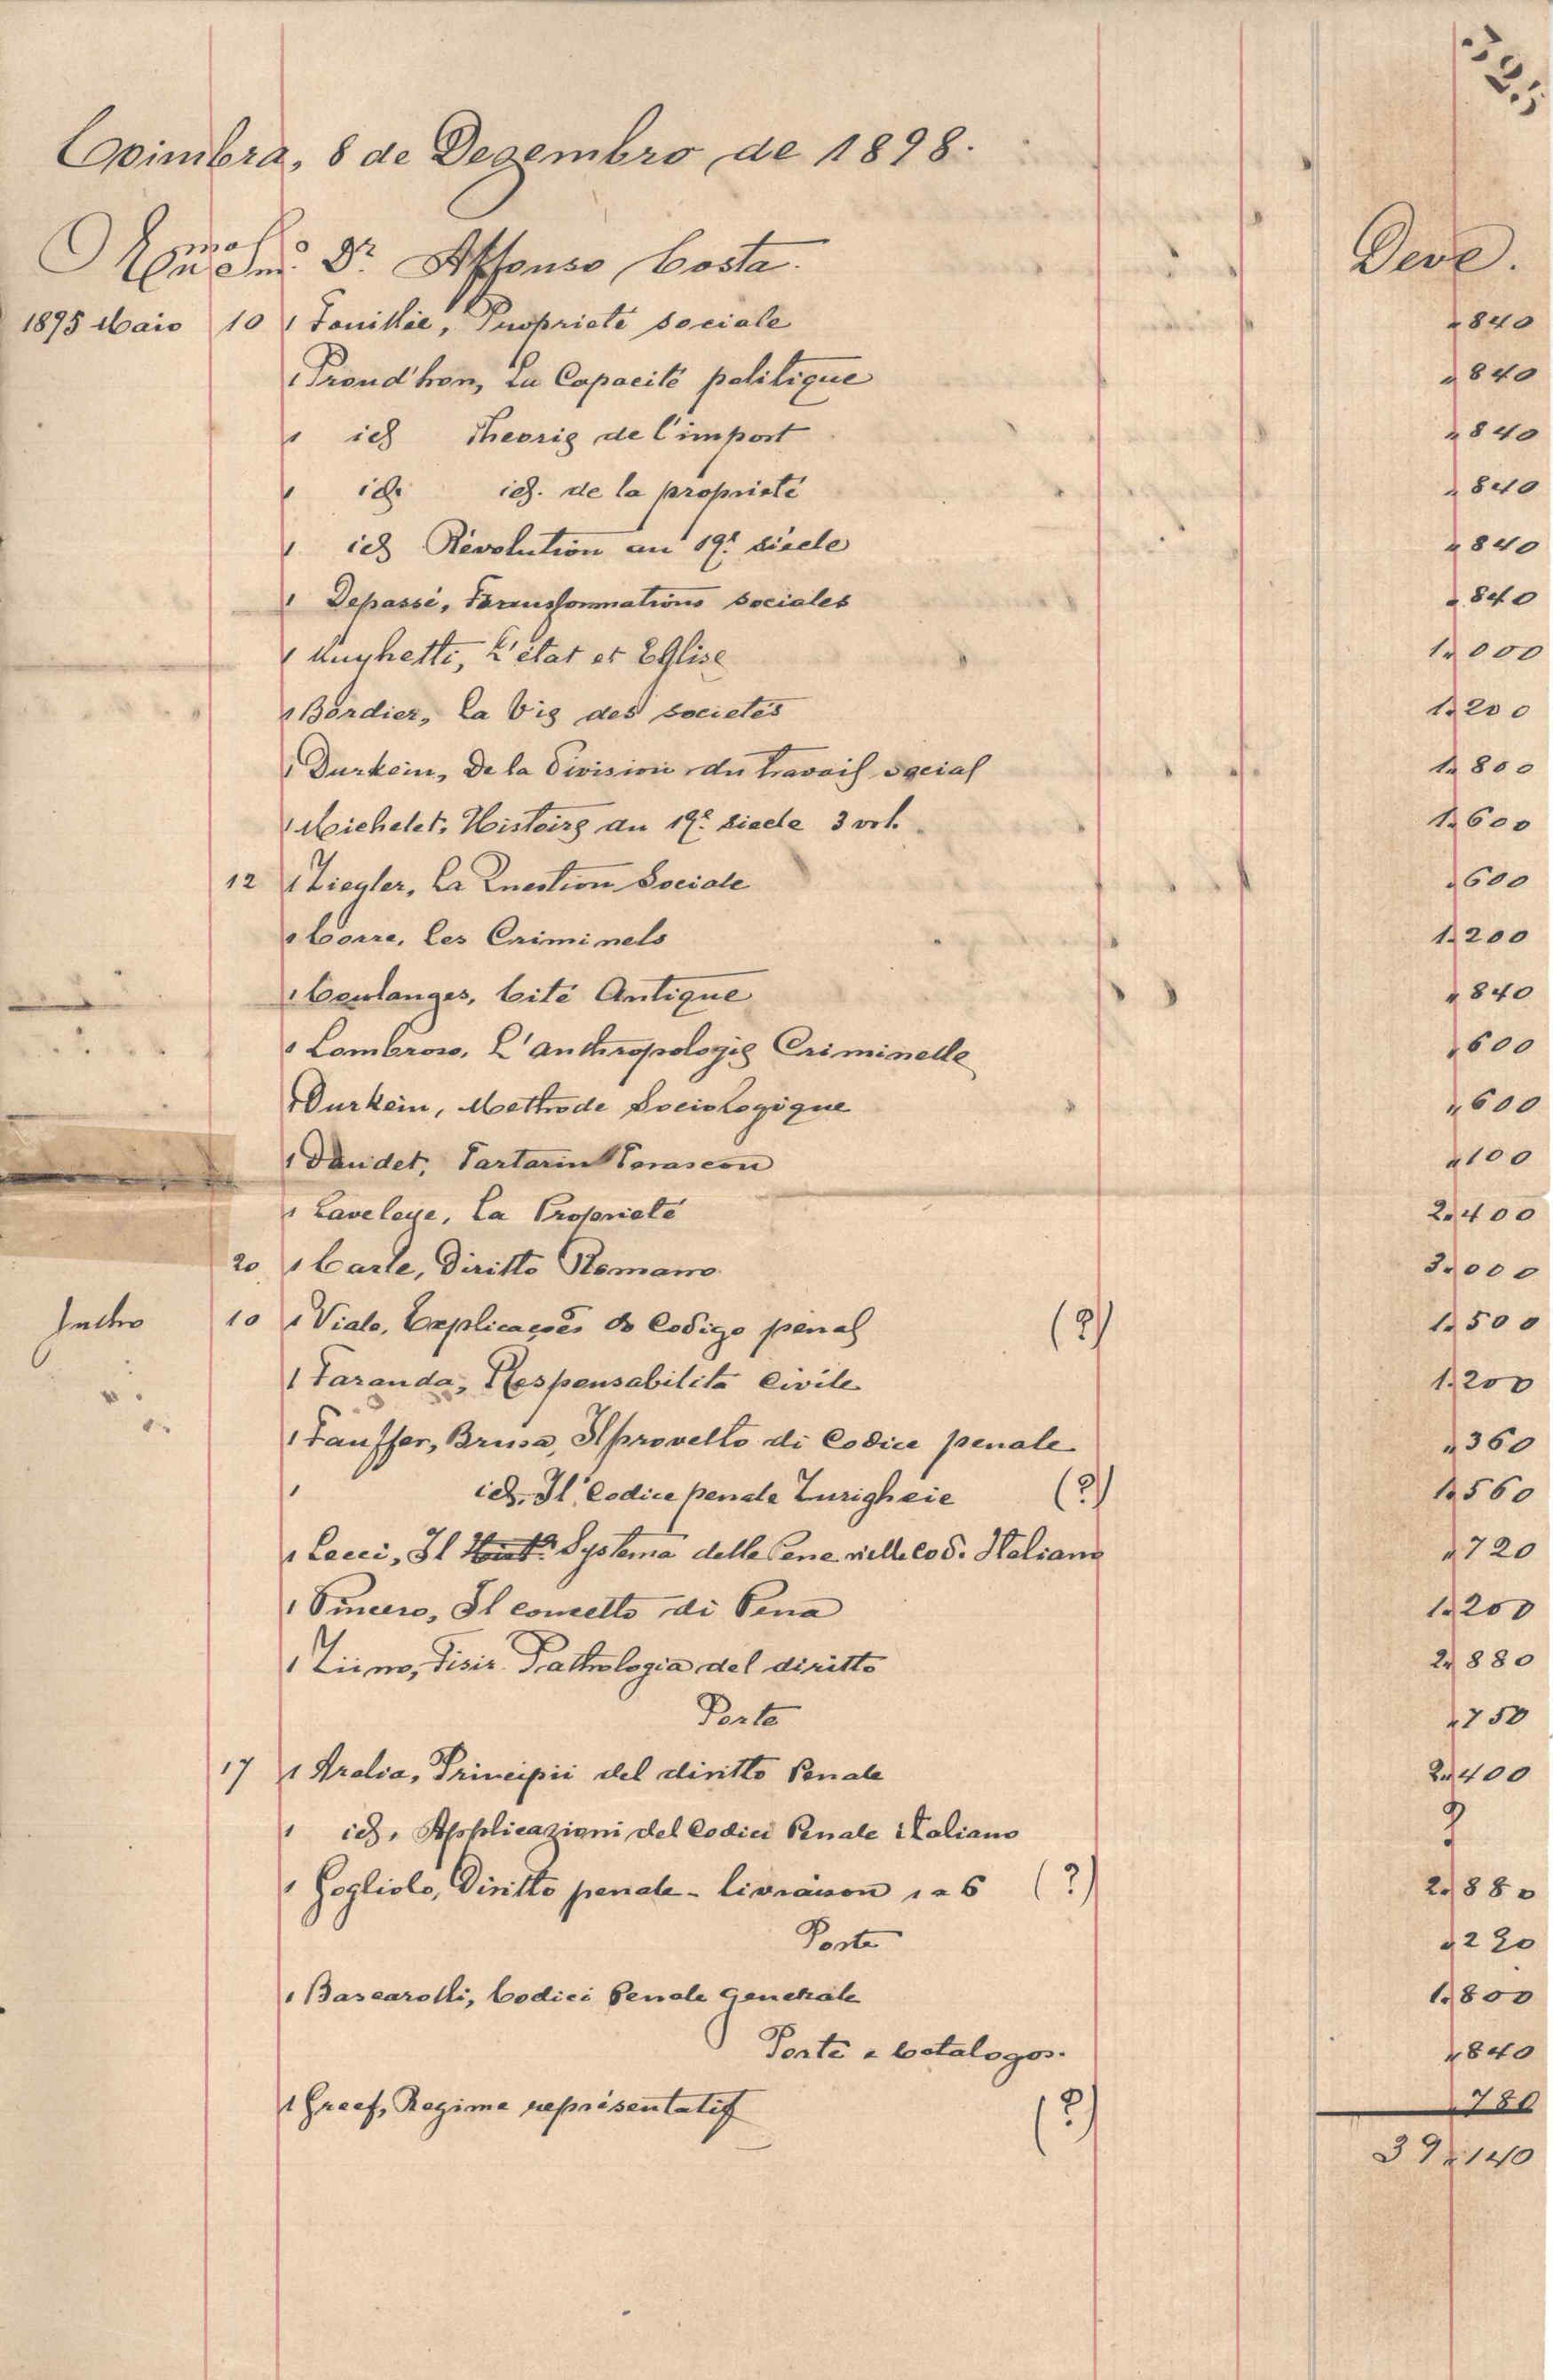 Coimbra, 8 de Dezembro de 1898.
Exmo Snr. Dr. Affonso Costa. Deve.
1895 Maio 10 1 Fouillée, Proprieté sociale "840
1 Proud'hon, La Capacité politique "840
1 id Theorie de l'impost "840
1 id. id. de la proprieté "840
1 id Révolution au 19e siècle "840
1 Depasse, Transformations sociales "840
1 Minghetti, L'état et Eglise 1"000
1 Bordier, La Vie des societés 1"200
1 Durkein, De la Division du travail social 1"800
1 Michelet, Histoire du 19e siecle 3 vol. 1"600
12 1 Ziegler, La Question Sociale "600
1 Corre, Les Criminels 1"200
1 Coulanges, Cité Antique "840
1 Lombroso, L'anthropologie Criminelle "600
1 Durkein, Methode Sociologique "600
1 Daudet, Tartarin Tarascon "100
1 Laveleye, La Proprieté 2"400
20 1 Carle, Diritto Romano 3"000
Julho 10 1 Vialo, Explicações do Codigo penal (?) 1"500
1 Faranda, Responsabilita Civile 1"200
1 Tauffer, Brusa, Il provetto di Codice penale "360
1 id. Il Codice penale Zurigheie (?) 1"560
1 Lecci, Il Systema delle Pene nelle Cod. Italiano "720
1 Vincero, Il concetto di Pena 1"200
1 Ziino, Fisio Pathologia del diritto 2"880
Porte "750
17 1 Aralia, Principii del diritto Penale 2"400
1 id, Applicazioni del Codici Penale italiano ?
1 Cogliolo, Diritto penale - livraison 1 a 6 (?) 2"880
Porte "220
1 Bascarolli, Codici Penale Generale 1"800
Porte e Catalogos. "840
1 Greef, Regime représentatif (?) "780
39"140